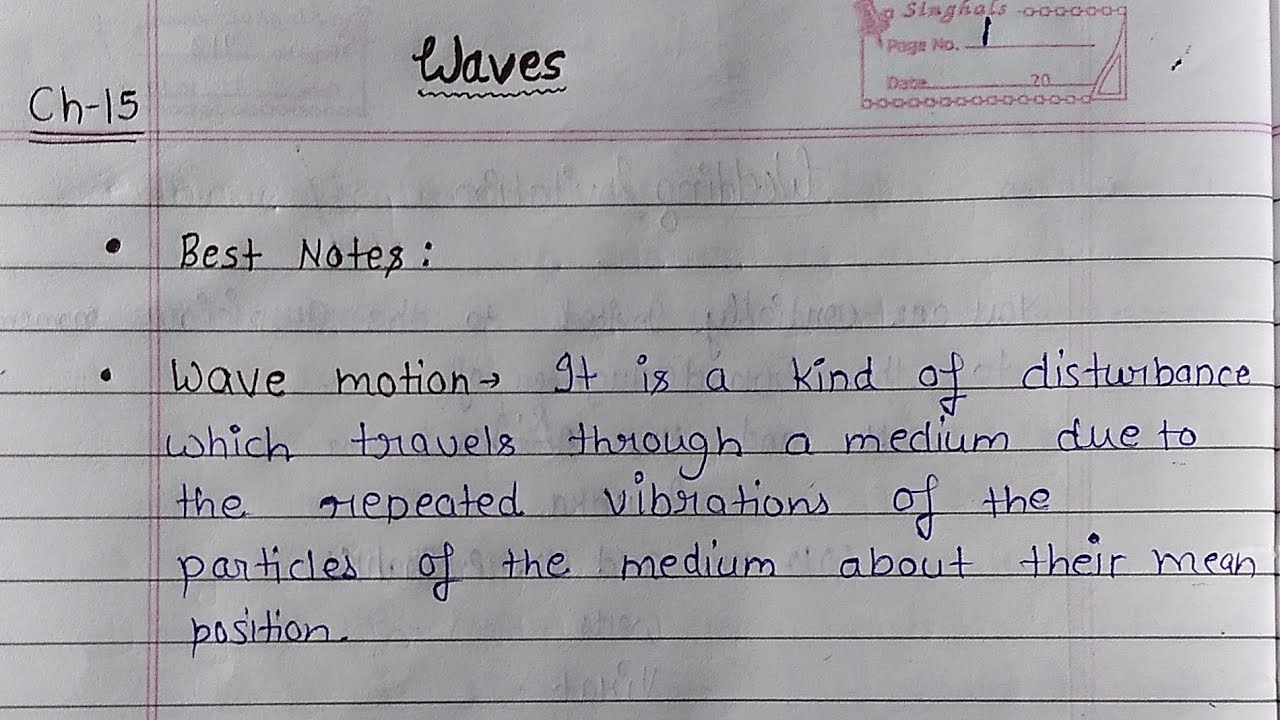 Singhals
Waves
Page No. 1
Date 20
Ch-15
• Best Notes:
• Wave motion→ It is a kind of disturbance
which travels through a medium due to
the repeated vibrations of the
particles of the medium about their mean
position.